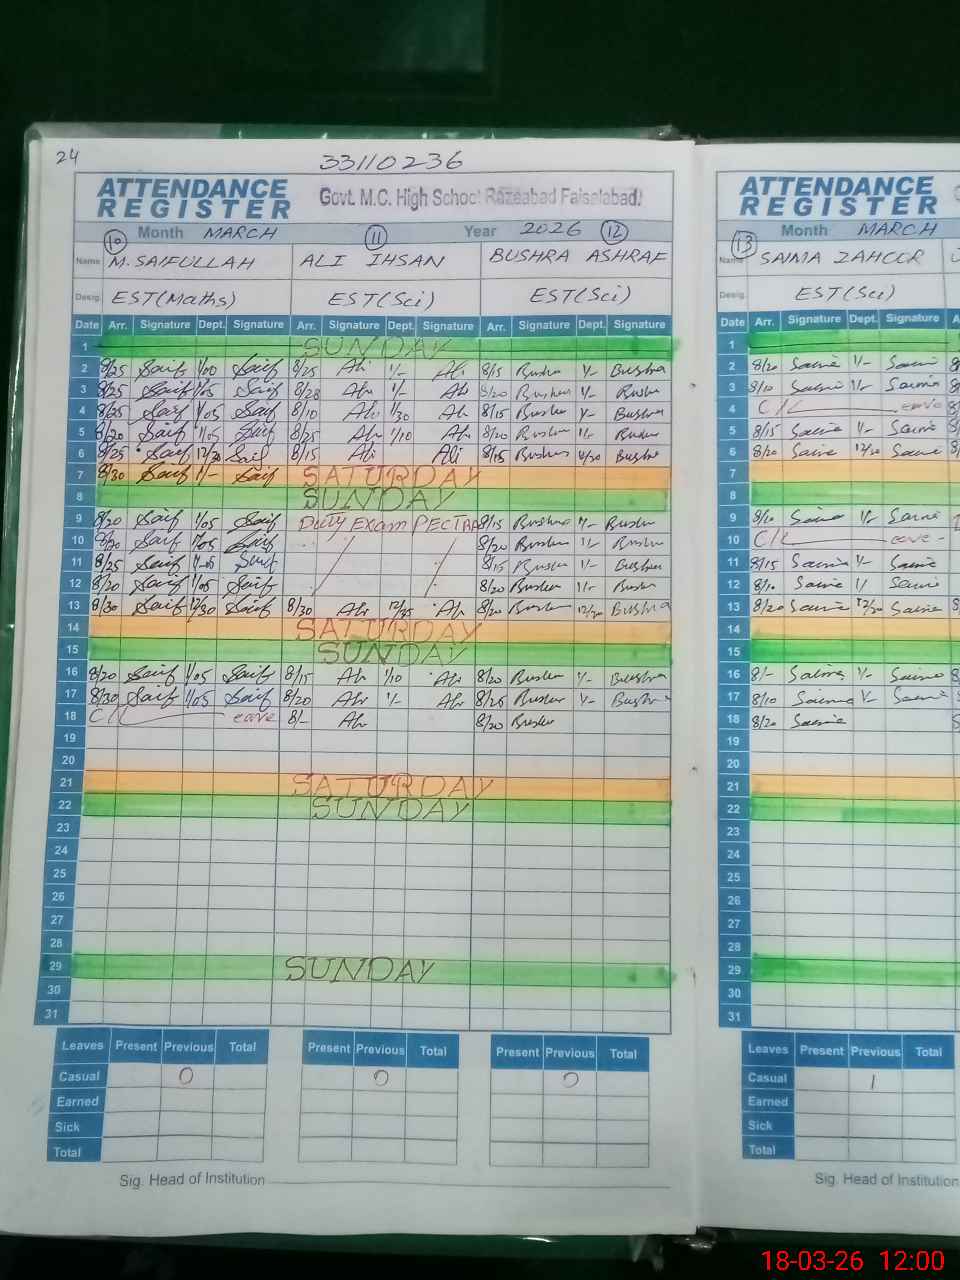 24
33110236
ATTENDANCE REGISTER
Govt. M.C. High School Razeabad Faisalabad.
10 Month MARCH 11 Year 2026 12
Name M. SAIFULLAH ALI IHSAN BUSHRA ASHRAF
Desig. EST(Maths) EST(Sci) EST(Sci)
Date Arr. Signature Dept. Signature Arr. Signature Dept. Signature Arr. Signature Dept. Signature
1 SUNDAY
2 8/25 Saif 1/00 Saif 8/25 Ali 1/- Ali 8/15 Bushra 1/- Bushra
3 8/25 Saif 1/05 Saif 8/28 Ali 1/- Ali 8/20 Bushra 1/- Bushra
4 8/25 Saif 1/05 Saif 8/10 Ali 1/30 Ali 8/15 Bushra 1/- Bushra
5 8/20 Saif 1/05 Saif 8/25 Ali 1/10 Ali 8/20 Bushra 1/- Bushra
6 8/25 Saif 12/30 Saif 8/15 Ali Ali 8/15 Bushra 12/30 Bushra
7 8/30 Saif 1/- Saif SATURDAY
8 SUNDAY
9 8/20 Saif 1/05 Saif Duty Exam PECTRA 8/15 Bushra 1/- Bushra
10 8/20 Saif 1/05 Saif 8/20 Bushra 1/- Bushra
11 8/25 Saif 1/05 Saif 8/15 Bushra 1/- Bushra
12 8/20 Saif 1/05 Saif 8/20 Bushra 1/- Bushra
13 8/30 Saif 12/30 Saif 8/30 Ali 12/35 Ali 8/20 Bushra 12/30 Bushra
14 SATURDAY
15 SUNDAY
16 8/20 Saif 1/05 Saif 8/15 Ali 1/10 Ali 8/20 Bushra 1/- Bushra
17 8/30 Saif 1/05 Saif 8/20 Ali 1/- Ali 8/25 Bushra 1/- Bushra
18 C/Leave 8/- Ali 8/20 Bushra
19
20
21 SATURDAY
22 SUNDAY
23
24
25
26
27
28
29 SUNDAY
30
31
Leaves Present Previous Total Present Previous Total Present Previous Total
Casual 0 0 0
Earned
Sick
Total
Sig. Head of Institution
ATTENDANCE REGISTER
13 Month MARCH
Name SAIMA ZAHOOR
Desig. EST(Sci)
Date Arr. Signature Dept. Signature
1
2 8/20 Saima 1/- Saima
3 8/10 Saima 1/- Saima
4 C/Leave
5 8/15 Saima 1/- Saima
6 8/20 Saima 12/30 Saima
7
8
9 8/10 Saima 1/- Saima
10 C/Leave
11 8/15 Saima 1/- Saima
12 8/10 Saima 1/ Saima
13 8/20 Saima 12/30 Saima
14
15
16 8/- Saima 1/- Saima
17 8/10 Saima 1/- Saima
18 8/20 Saima
19
20
21
22
23
24
25
26
27
28
29
30
31
Leaves Present Previous Total
Casual 1
Earned
Sick
Total
Sig. Head of Institution
18-03-26 12:00